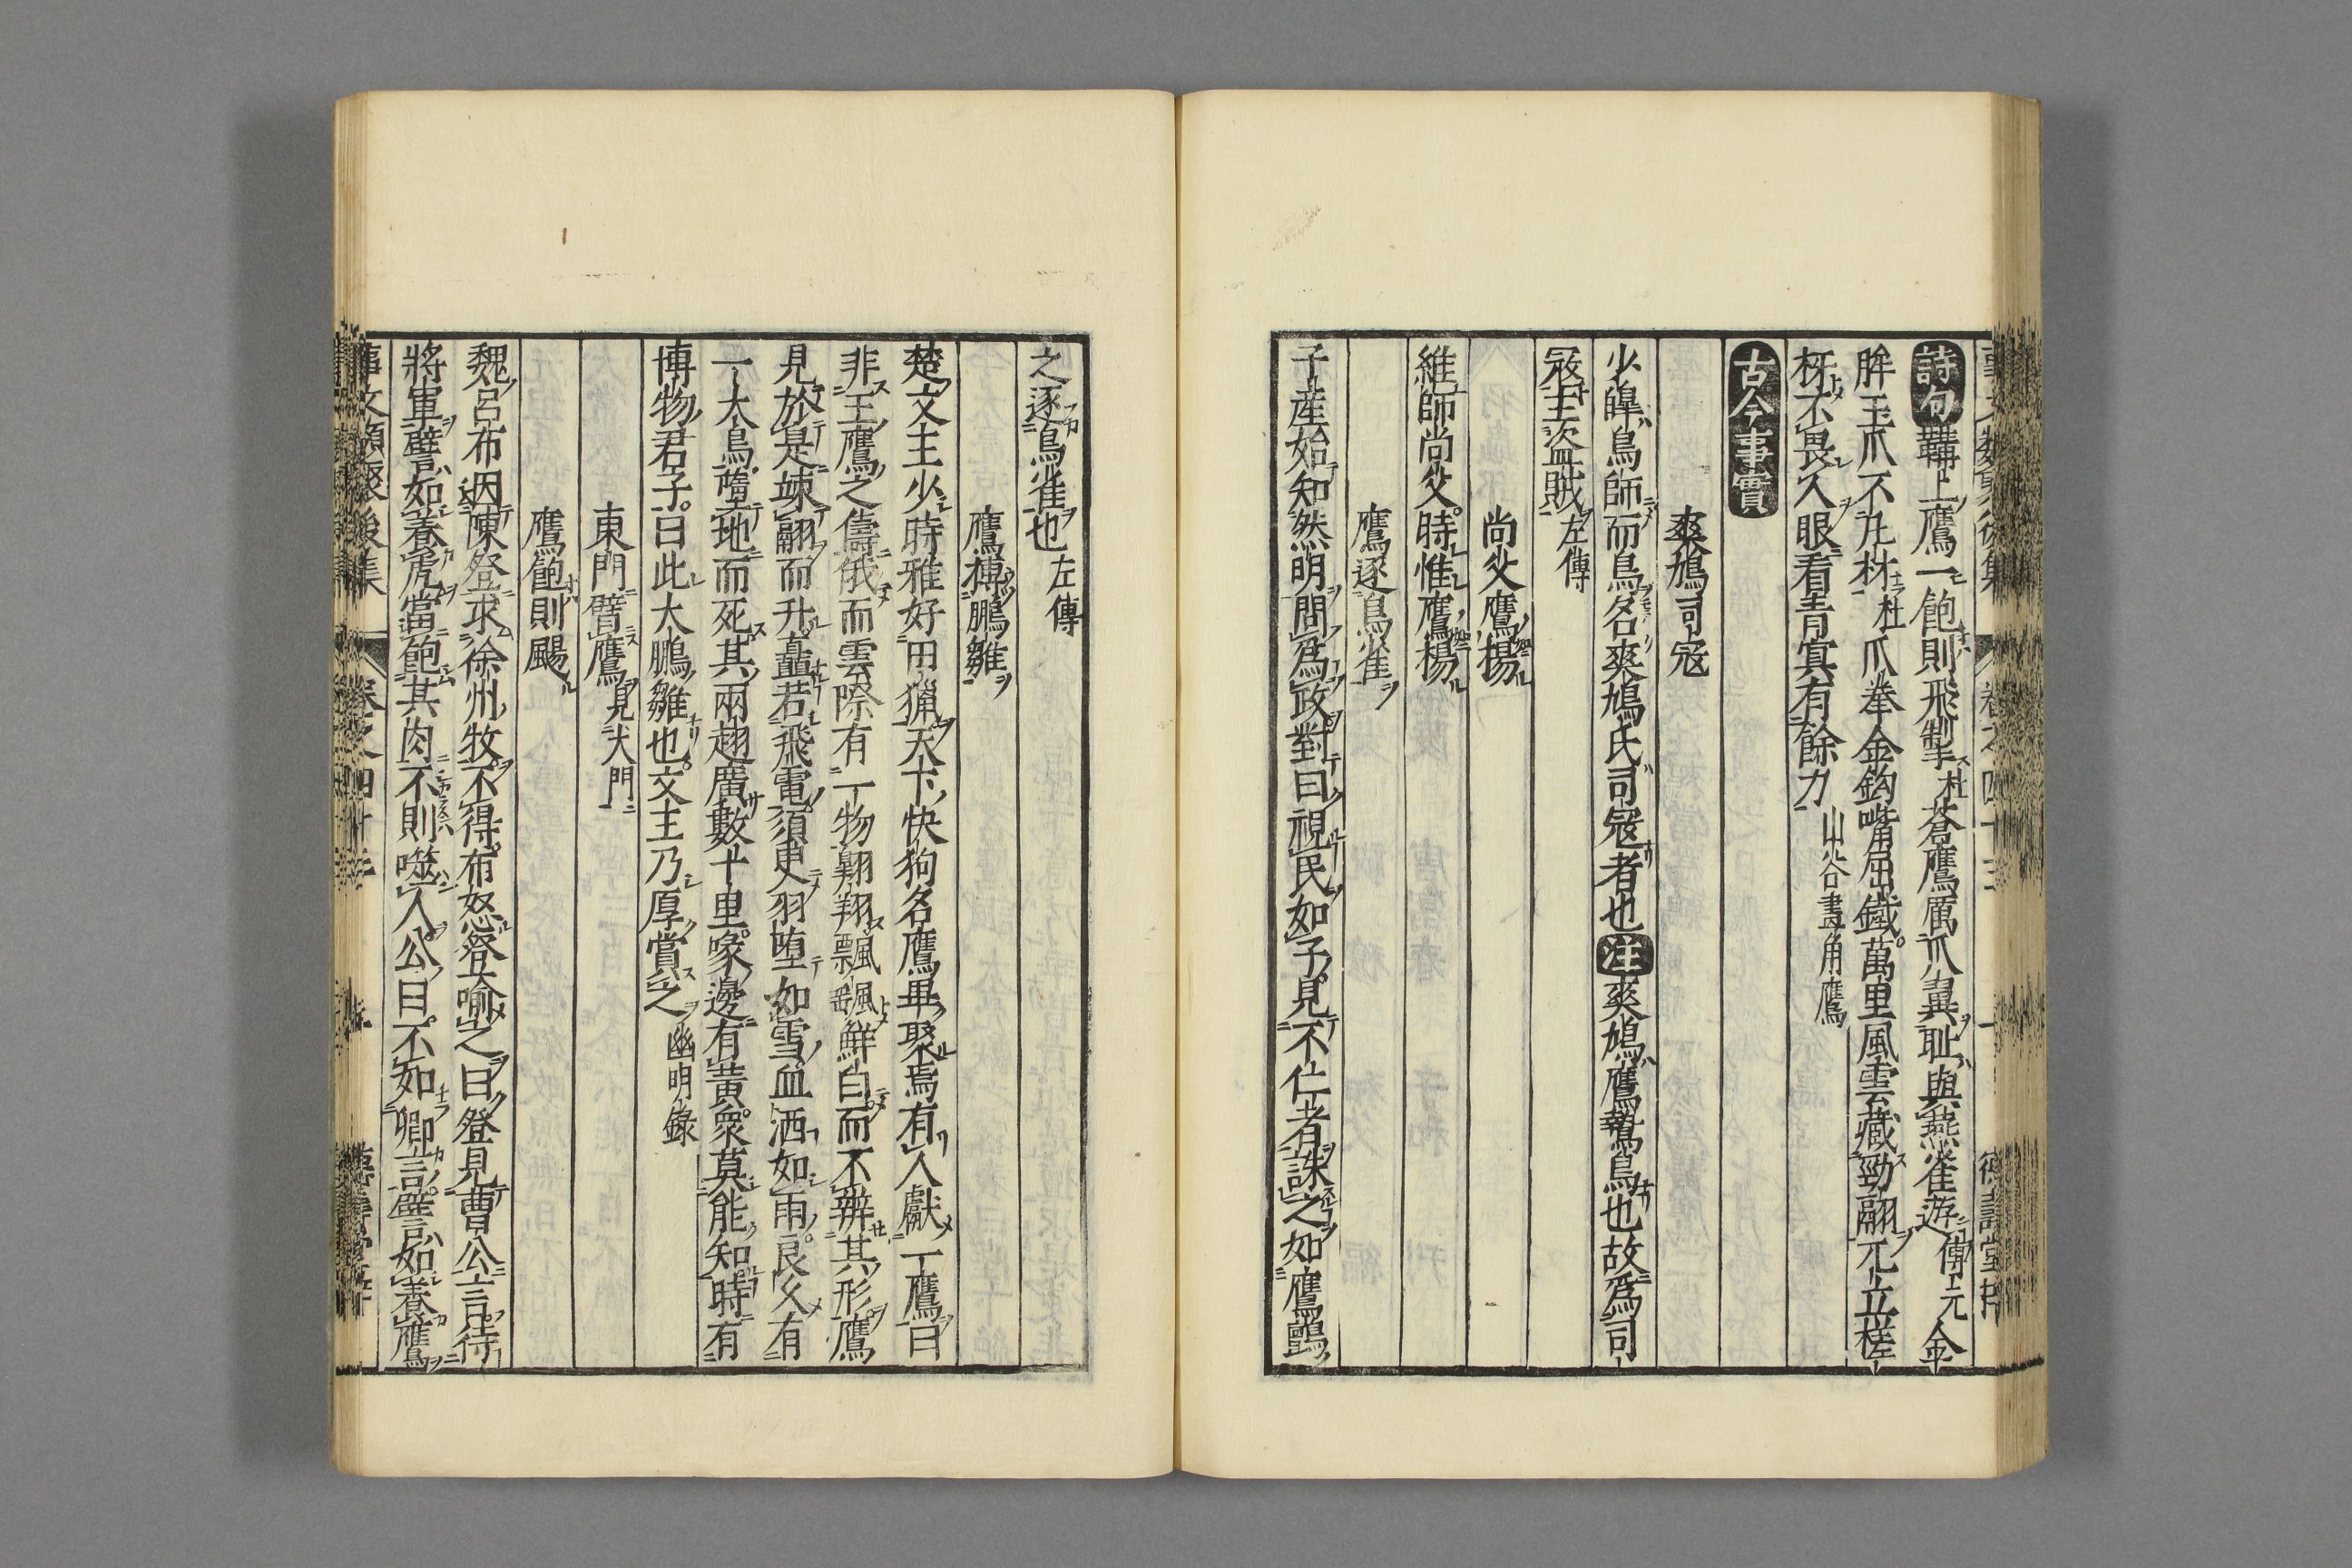 詩句鞲上鷹一飽則飛掣杜蒼鷹厲爪翼耻與燕雀遊傅元金
眸玉爪不凡材杜爪拳金鈎觜屈鐵萬里風雲藏勁翮兀立槎
枒不畏人眼看青冥有餘力山谷畫角鷹
古今事實
爽鳩司寇
少皥鳥師而鳥名爽鳩氏司寇者也注爽鳩鷹鷙鳥也故為司
寇主盗賊左傳
尚父鷹揚
維師尚父時惟鷹楊
鷹逐鳥雀
子産始知然明問為政對曰視民如子見不仁者誅之如鷹鸇
之逐鳥雀也左傳
鷹搏鵬雛
楚文王少時雅好田獵天下快狗名鷹畢聚焉有人獻一鷹曰
非王鷹之儔俄而雲際有一物翱翔飄颻鮮白而不辨其形鷹
見於是竦翮而升矗若飛電須臾羽堕如雪血洒如雨良久有
一大鳥墮地而死其兩翅廣數十里喙邊有黄衆莫能知時有
博物君子曰此大鵬雛也文王乃厚賞之幽明錄
東門臂鷹見犬門
鷹飽則颺
魏呂布因陳登求徐州牧不得布怒登喻之曰登見曹公言待
將軍譬如養虎當飽其肉不則噬人公曰不如卿言譬如養鷹
事文類聚後集 卷之四十三